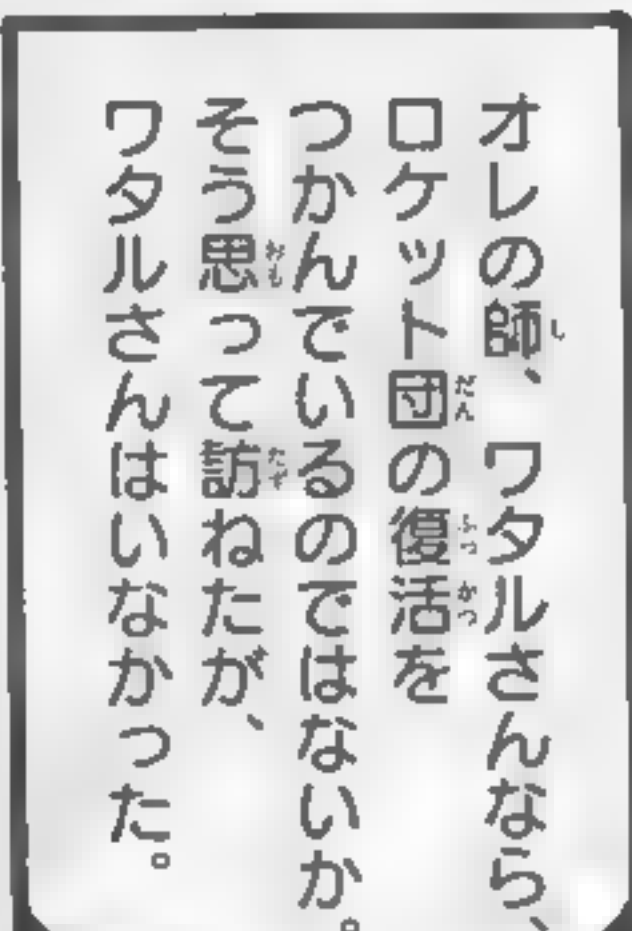 オレの師、ワタルさんなら、
ロケット団の復活を
つかんでいるのではないか。
そう思って訪ねたが、
ワタルさんはいなかった。
し
だん
ふっかつ
おも
たず